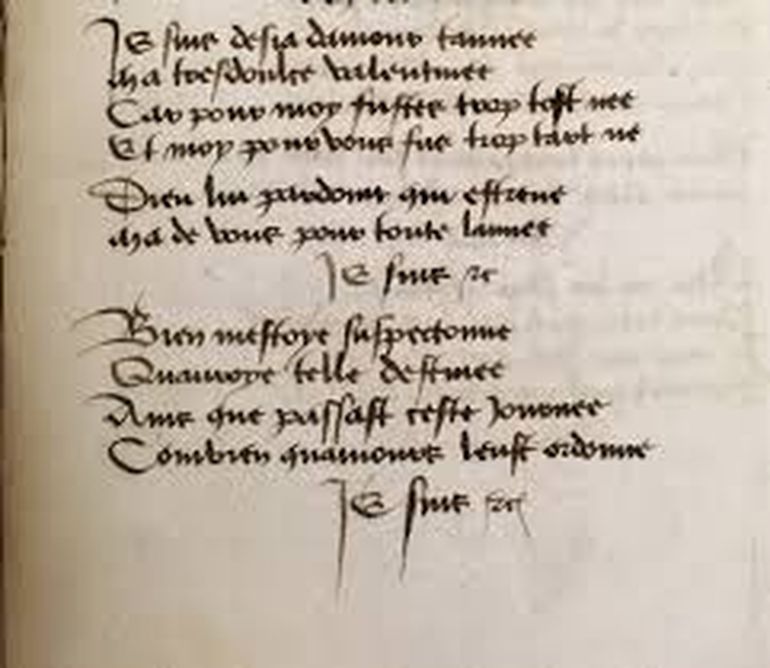 Je suis desja damour tanne
Ma tresdoulce valentinee
Car pour moy fustes trop tost nee
Et moy pour vous fus trop tart ne
Dieu lui pardoint qui estrene
Ma de vous pour toute lannee
Je suis &c
Bien mestoye suspeconne
Quauroye telle destinee
Ains que passast ceste journee
Combien quamours leust ordonne
Je suis &c